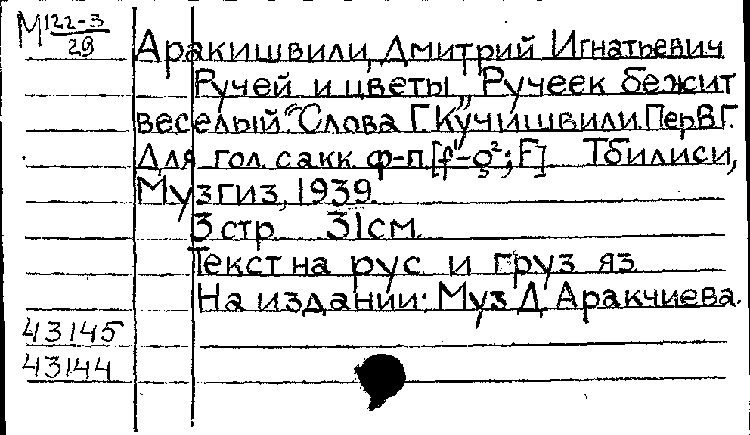 М 122-3
29
Аракишвили, Дмитрий Игнатьевич
Ручей и цветы „Ручеек бежит
веселый." Слова Г. Кучишвили. Пер В.Г.
Для гол. с акк. ф-п. [f¹-g²; F] Тбилиси,
Музгиз, 1939.
3 стр. 31 см.
Текст на рус. и груз. яз.
На издании: Муз. Д. Аракчиева.
43145
43144